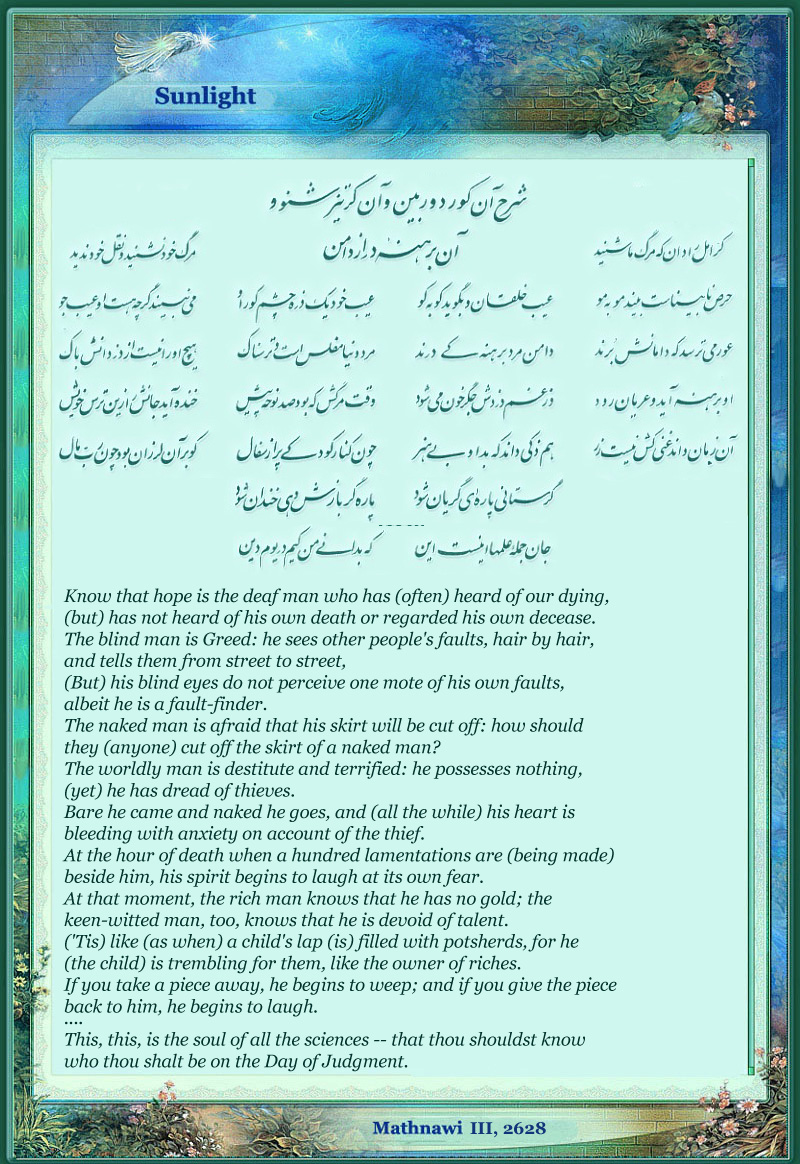 Sunlight
شرح آن کور دوربین و آن کر تیزشنو و
آن برهنه درازدامن
کر امل را دان که مرگ ما شنید مرگ خود نشنید و نقل خود ندید
حرص نابیناست بیند مو به مو عیب خلقان و بگوید کو به کو عیب خود یک ذره چشم کور او می نبیند گرچه هست او عیب جو
عور می ترسد که دامانش برند دامن مرد برهنه کی درند مرد دنیا مفلس است و ترسناک هیچ او را نیست از دزدانش باک
او برهنه آید و عریان رود وز غم دزدش جگر خون می شود وقت مرگش که بود صد نوحه پیش خنده آید جانش را زین ترس خویش
آن زمان داند غنی کش نیست زر هم ذکی داند که بد او بی هنر چون کنار کودکی پر از سفال کو بر آن لرزان بود چون رب مال
گر ستانی پاره‌ای گریان شود پاره گر بازش دهی خندان شود
-----
جان جمله علمها اینست این که بدانی من کیم در یوم دین
Know that hope is the deaf man who has (often) heard of our dying,
(but) has not heard of his own death or regarded his own decease.
The blind man is Greed: he sees other people's faults, hair by hair,
and tells them from street to street,
(But) his blind eyes do not perceive one mote of his own faults,
albeit he is a fault-finder.
The naked man is afraid that his skirt will be cut off: how should
they (anyone) cut off the skirt of a naked man?
The worldly man is destitute and terrified: he possesses nothing,
(yet) he has dread of thieves.
Bare he came and naked he goes, and (all the while) his heart is
bleeding with anxiety on account of the thief.
At the hour of death when a hundred lamentations are (being made)
beside him, his spirit begins to laugh at its own fear.
At that moment, the rich man knows that he has no gold; the
keen-witted man, too, knows that he is devoid of talent.
('Tis) like (as when) a child's lap (is) filled with potsherds, for he
(the child) is trembling for them, like the owner of riches.
If you take a piece away, he begins to weep; and if you give the piece
back to him, he begins to laugh.
....
This, this, is the soul of all the sciences -- that thou shouldst know
who thou shalt be on the Day of Judgment.
Mathnawi III, 2628